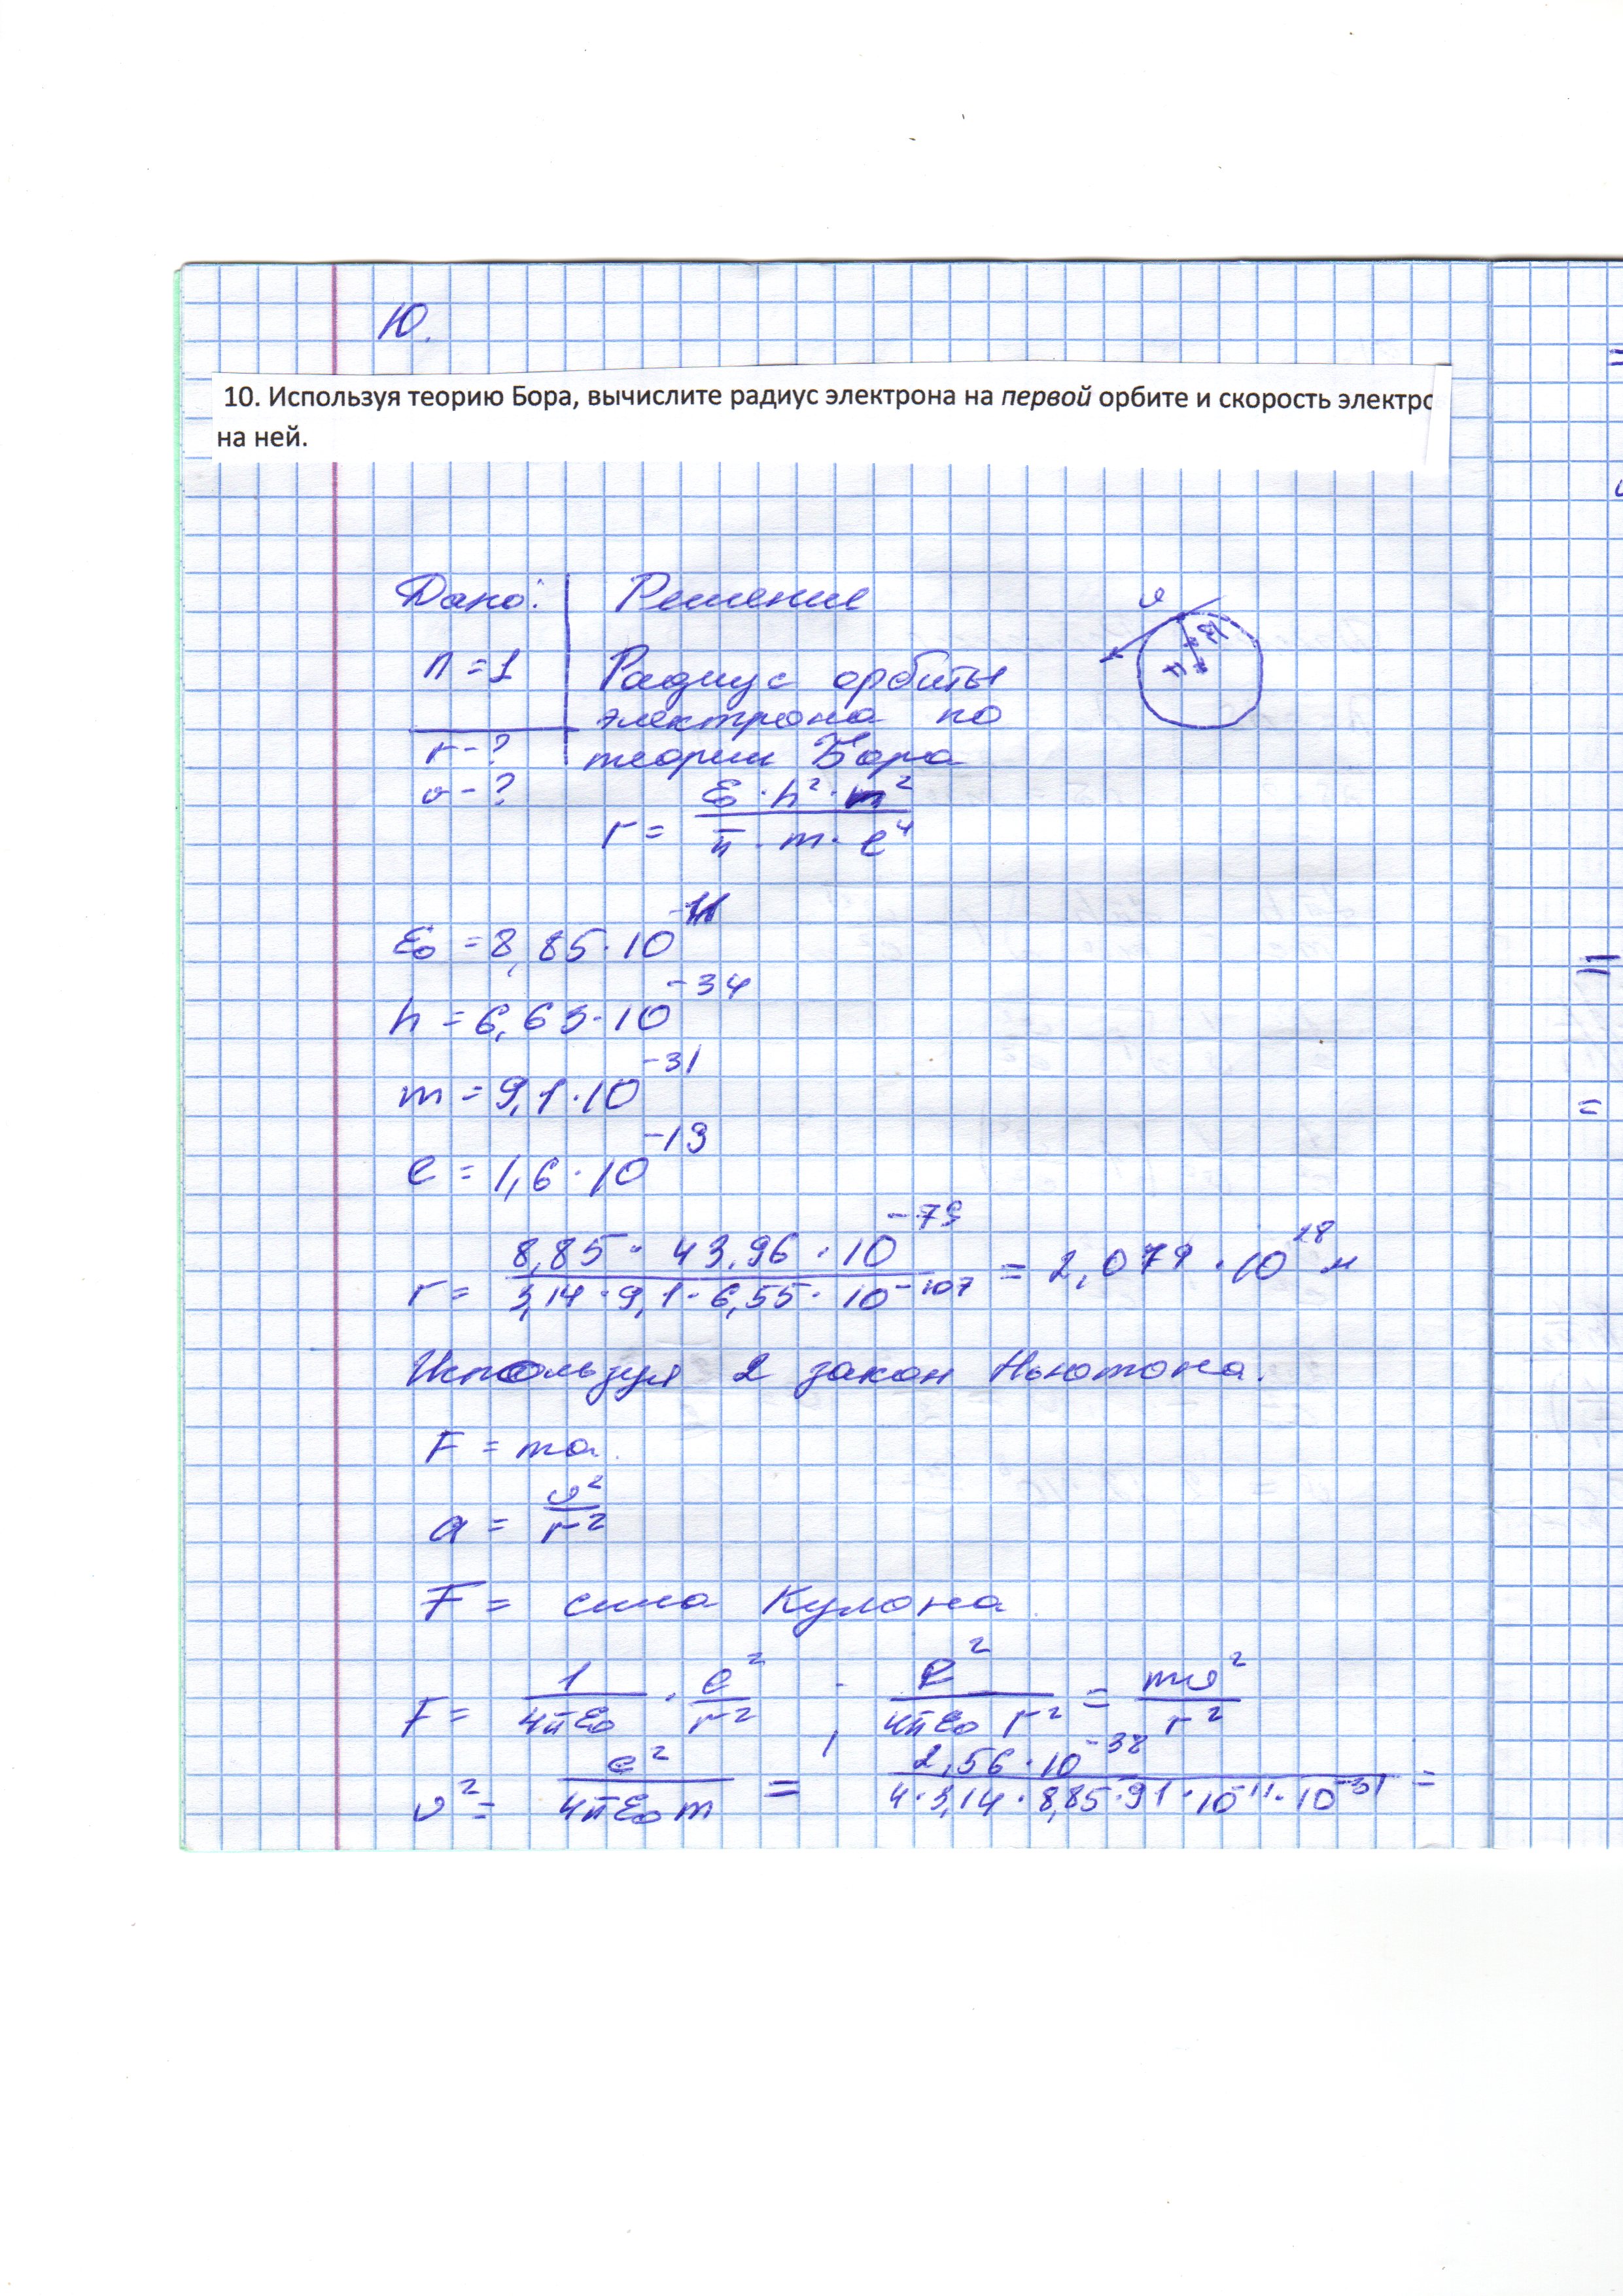 10.
10. Используя теорию Бора, вычислите радиус электрона на первой орбите и скорость электро
на ней.
Дано: Решение
υ
n = 1 Радиус орбиты
электрона по
r - ? теории Бора
υ - ?
r = (ε₀ · h² · n²) / (π · m · e⁴)
ε₀ = 8,85 · 10⁻¹¹
h = 6,63 · 10⁻³⁴
m = 9,1 · 10⁻³¹
e = 1,6 · 10⁻¹⁹
r = (8,85 · 43,96 · 10⁻⁷⁹) / (3,14 · 9,1 · 6,55 · 10⁻¹⁰⁷) = 2,079 · 10²⁸ м
Используя 2 закон Ньютона.
F = ma.
a = υ² / r²
F = сила Кулона
F = 1 / (4πε₀) · e² / r² , e² / (4πε₀ r²) = mυ² / r²
υ² = e² / (4πε₀ m) = (2,56 · 10⁻³⁸) / (4 · 3,14 · 8,85 · 9,1 · 10⁻¹¹ · 10⁻³¹) =